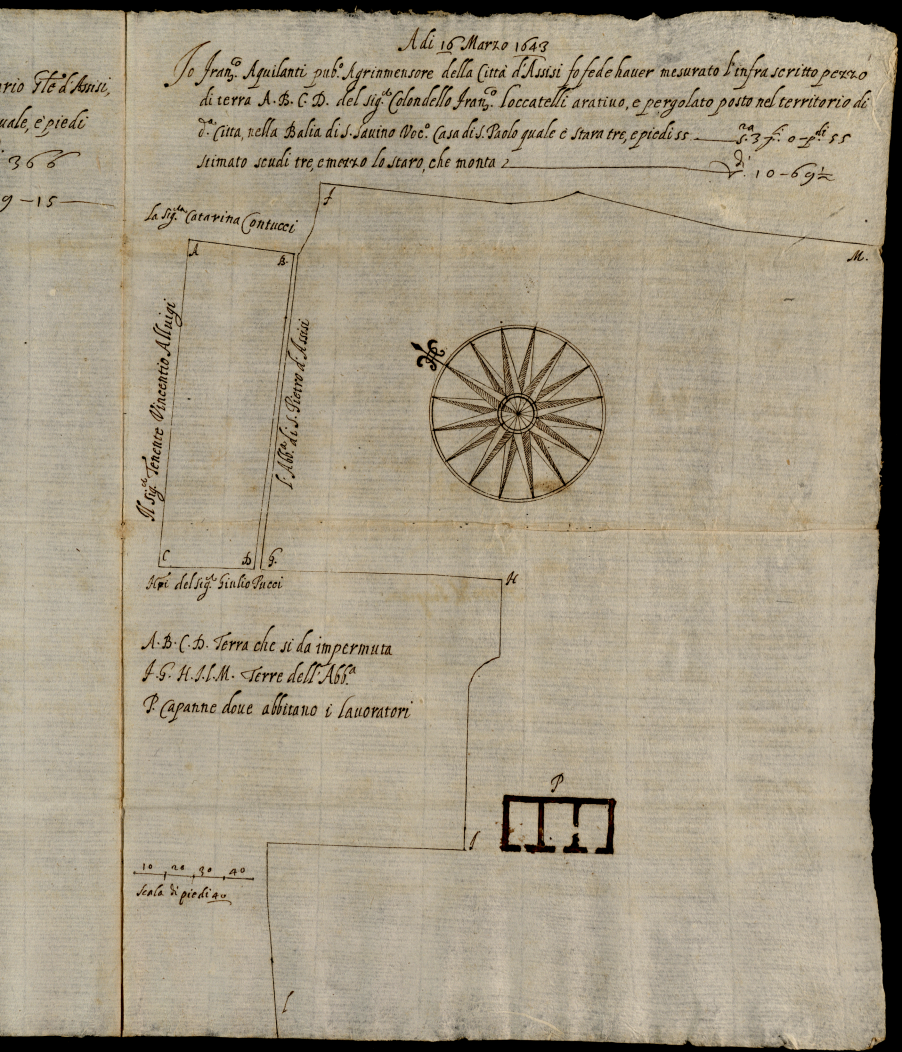 rio Gte d'Asisi,
uale, e piedi
366
9 – 15
A di 16 Marzo 1643
Io Franco Aquilanti pubo Agrinmensore della Città d'Assisi fo fede haver mesurato l'infrascritto pezzo
di terra A. B. C. D. del sigr Colondello Franco Loccatelli arativo, e pergolato posto nel territorio di
da Citta, nella Balia di S. Savino Voco Casa di S. Paolo quale è stara tre, e piedi 55 — sra 3 – 0 – pdi 55
stimato scudi tre, e mezzo lo staro, che monta di 10 – 69½
La Sigra Catarina Contucci
F
M.
A
B.
Il sigre Tenente Vincentio Alluigi
L'Abba di S. Pietro d'Assisi
C
D
G.
H
Hri del sigr Giulio Pucci
A. B. C. D. Terra che si da impermuta
F. G. H. I. L. M. Terre dell'Abba
P. Capanne dove abbitano i lavoratori
P
I
10 20 30 40
Scala di piedi 40
L